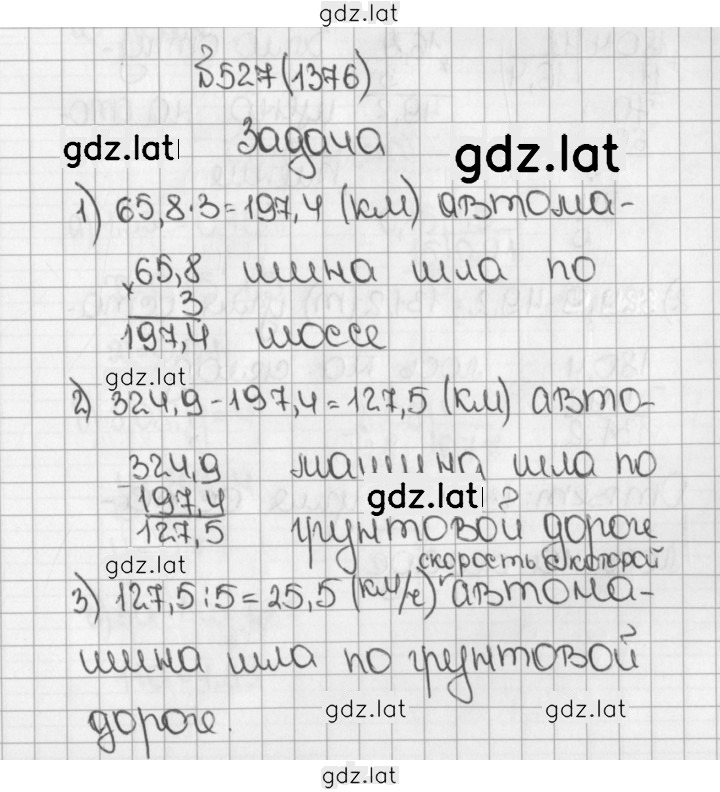 gdz.lat
527(1376)
gdz.lat Задача gdz.lat
1) 65,8·3=197,4 (км) автома-
65,8 шина шла по
× 3
197,4 шоссе
gdz.lat
2) 324,9-197,4=127,5 (км) авто-
324,9 машина шла по
-197,4 gdz.lat
127,5 грунтовой дороге
gdz.lat скорость с которой
3) 127,5:5=25,5 (км/ч) автома-
шина шла по грунтовой
дороге.
gdz.lat gdz.lat
gdz.lat